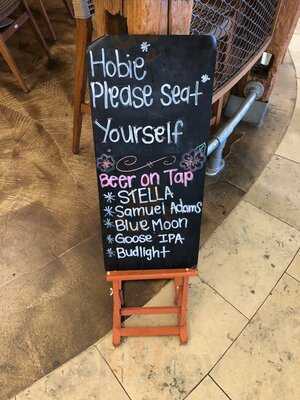 Hobie
Please seat
Yourself
Beer on Tap
* STELLA
* Samuel Adams
* Blue Moon
* Goose IPA
* Budlight